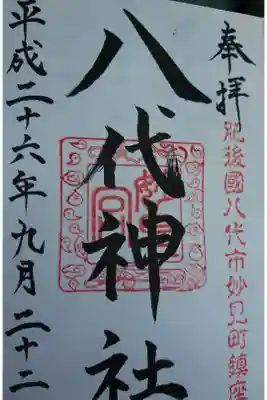 奉拝
肥後國八代市妙見町鎮座
八代神社
平成二十六年九月二十二